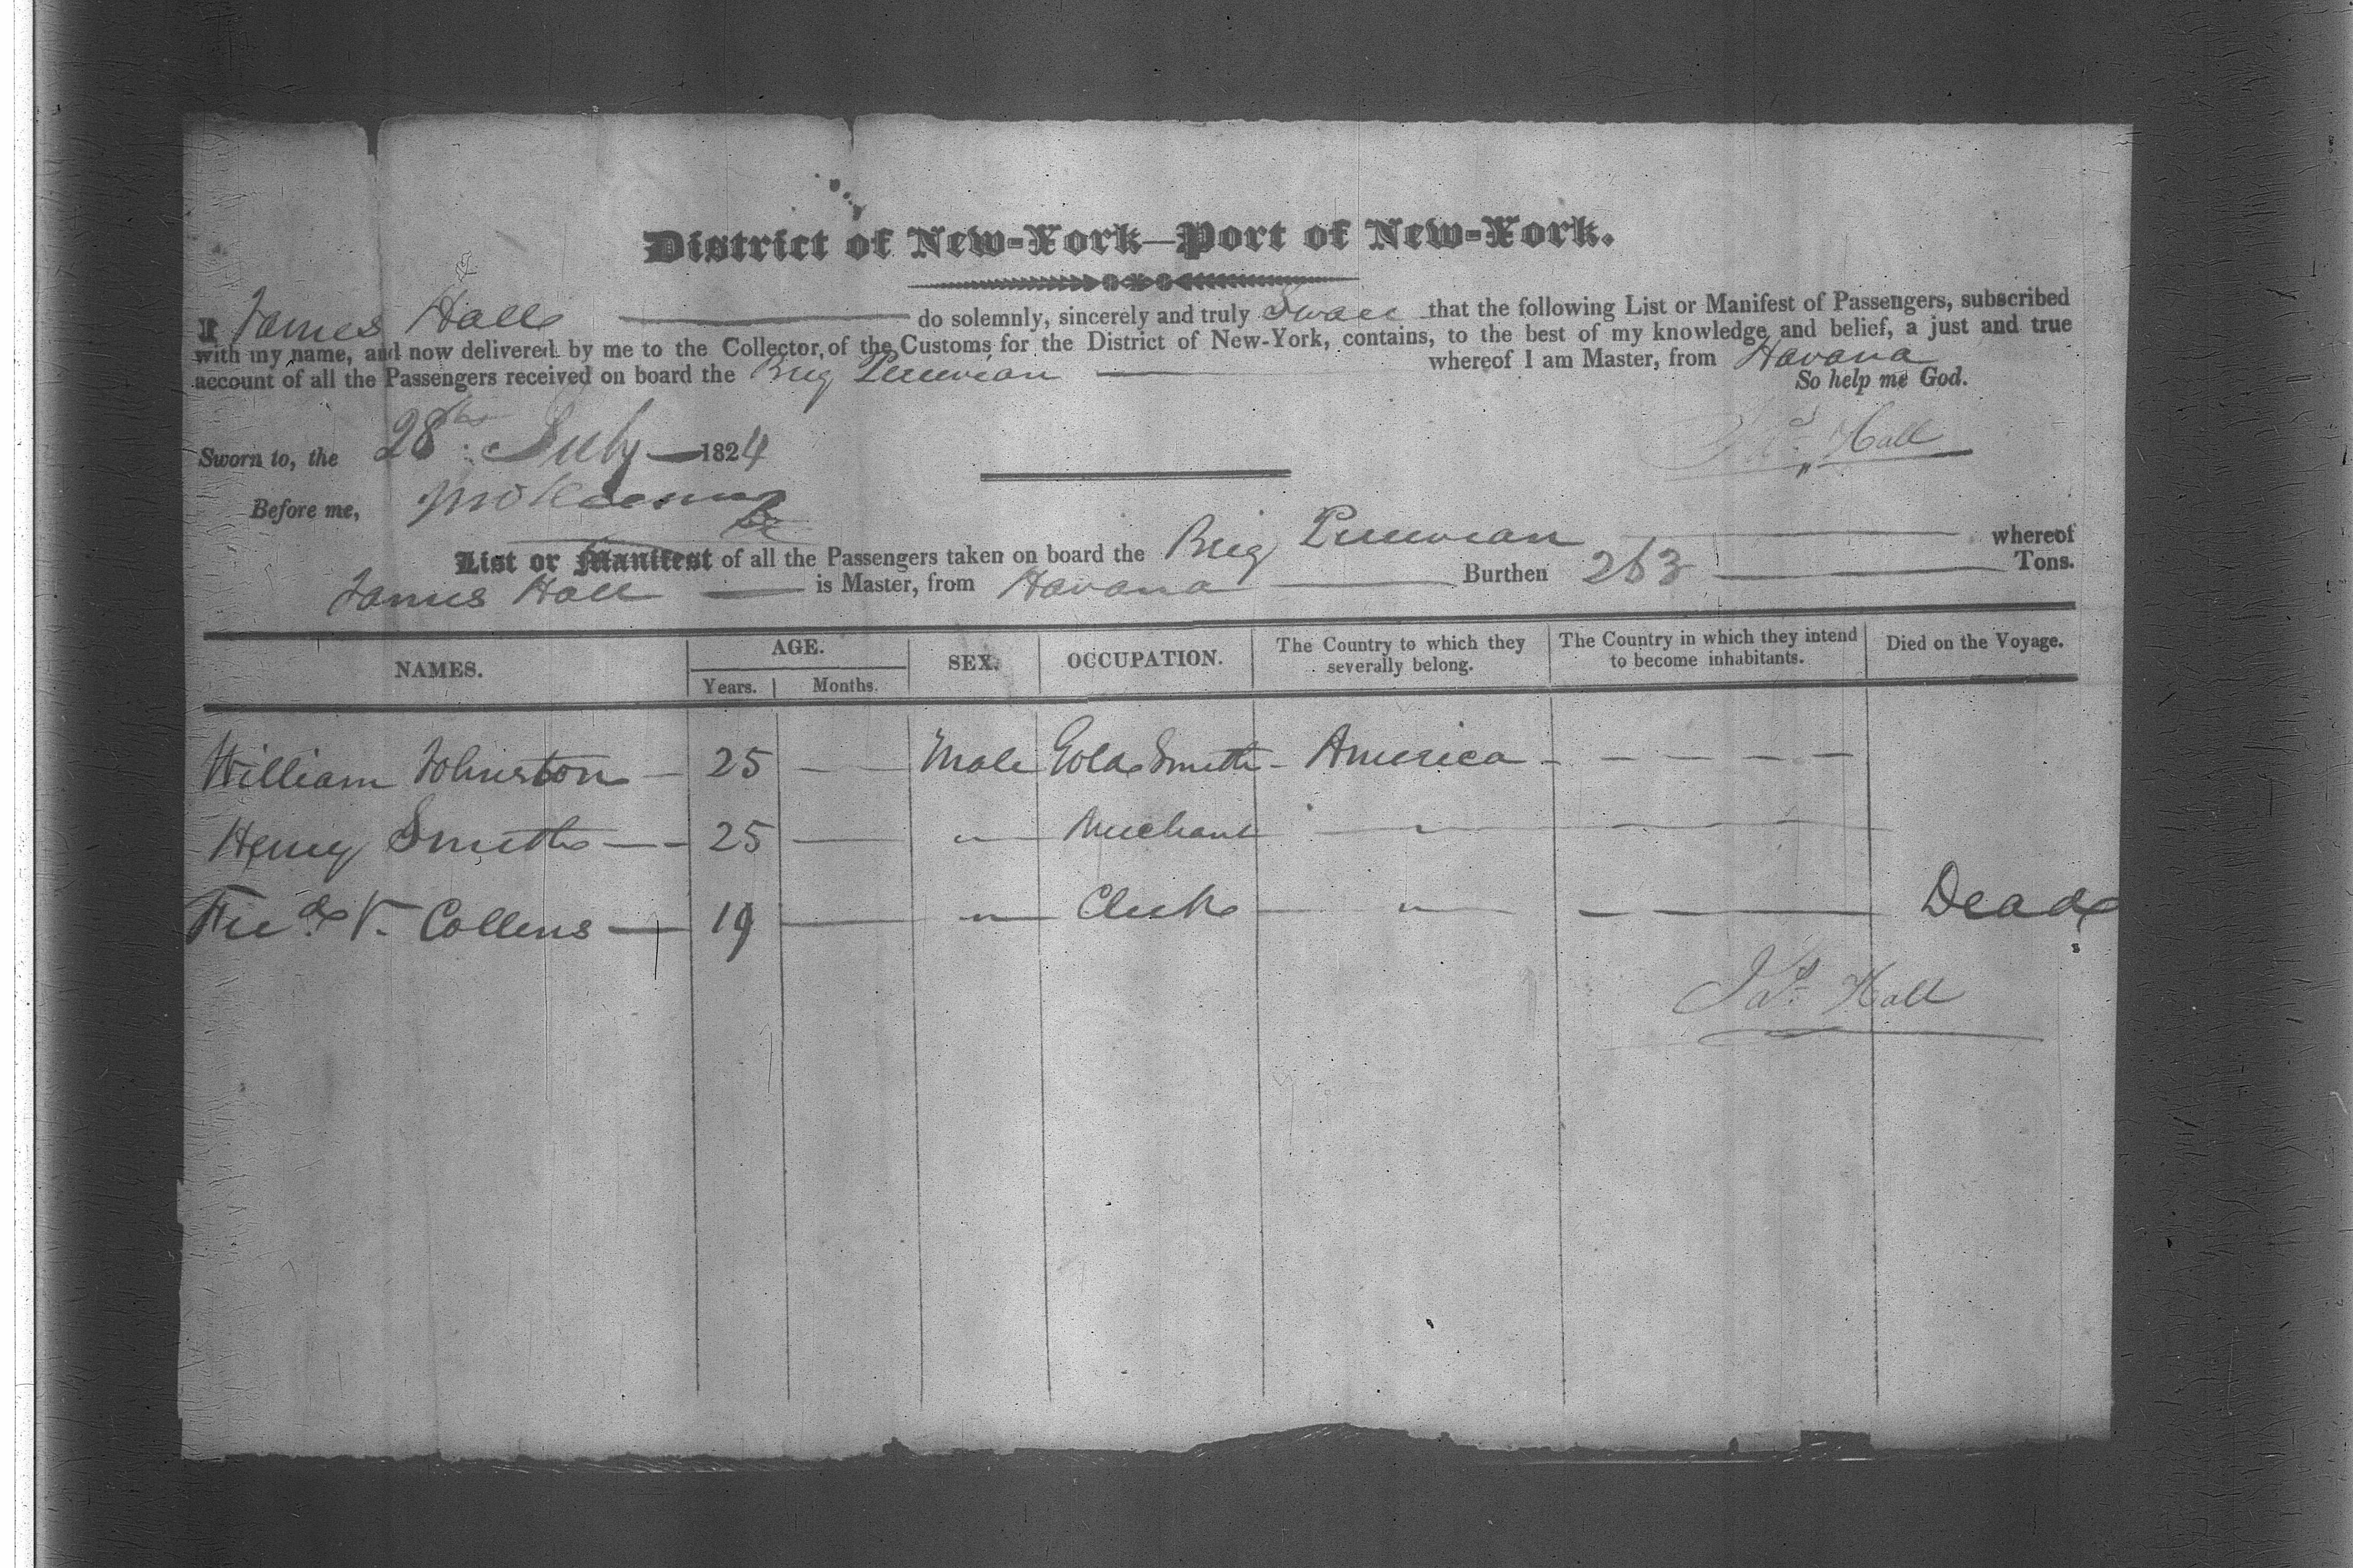 District of New-York—Port of New-York.
I James Hall do solemnly, sincerely and truly Swear that the following List or Manifest of Passengers, subscribed
with my name, and now delivered by me to the Collector of the Customs for the District of New-York, contains, to the best of my knowledge and belief, a just and true
account of all the Passengers received on board the Brig Peruvian whereof I am Master, from Havana
So help me God.
Jas Hall
Sworn to, the 28th July 1824
Before me,
List or Manifest of all the Passengers taken on board the Brig Peruvian whereof
James Hall is Master, from Havana Burthen 263 Tons.
NAMES. AGE. Years. Months. SEX. OCCUPATION. The Country to which they severally belong. The Country in which they intend to become inhabitants. Died on the Voyage.
William Johnston — 25 — Male Gold Smith - America - - - - -
Henry Smith — - 25 — " Merchant — " —
Fred. V. Collins — 19 — " Clerk — " — Dead
Jas Hall